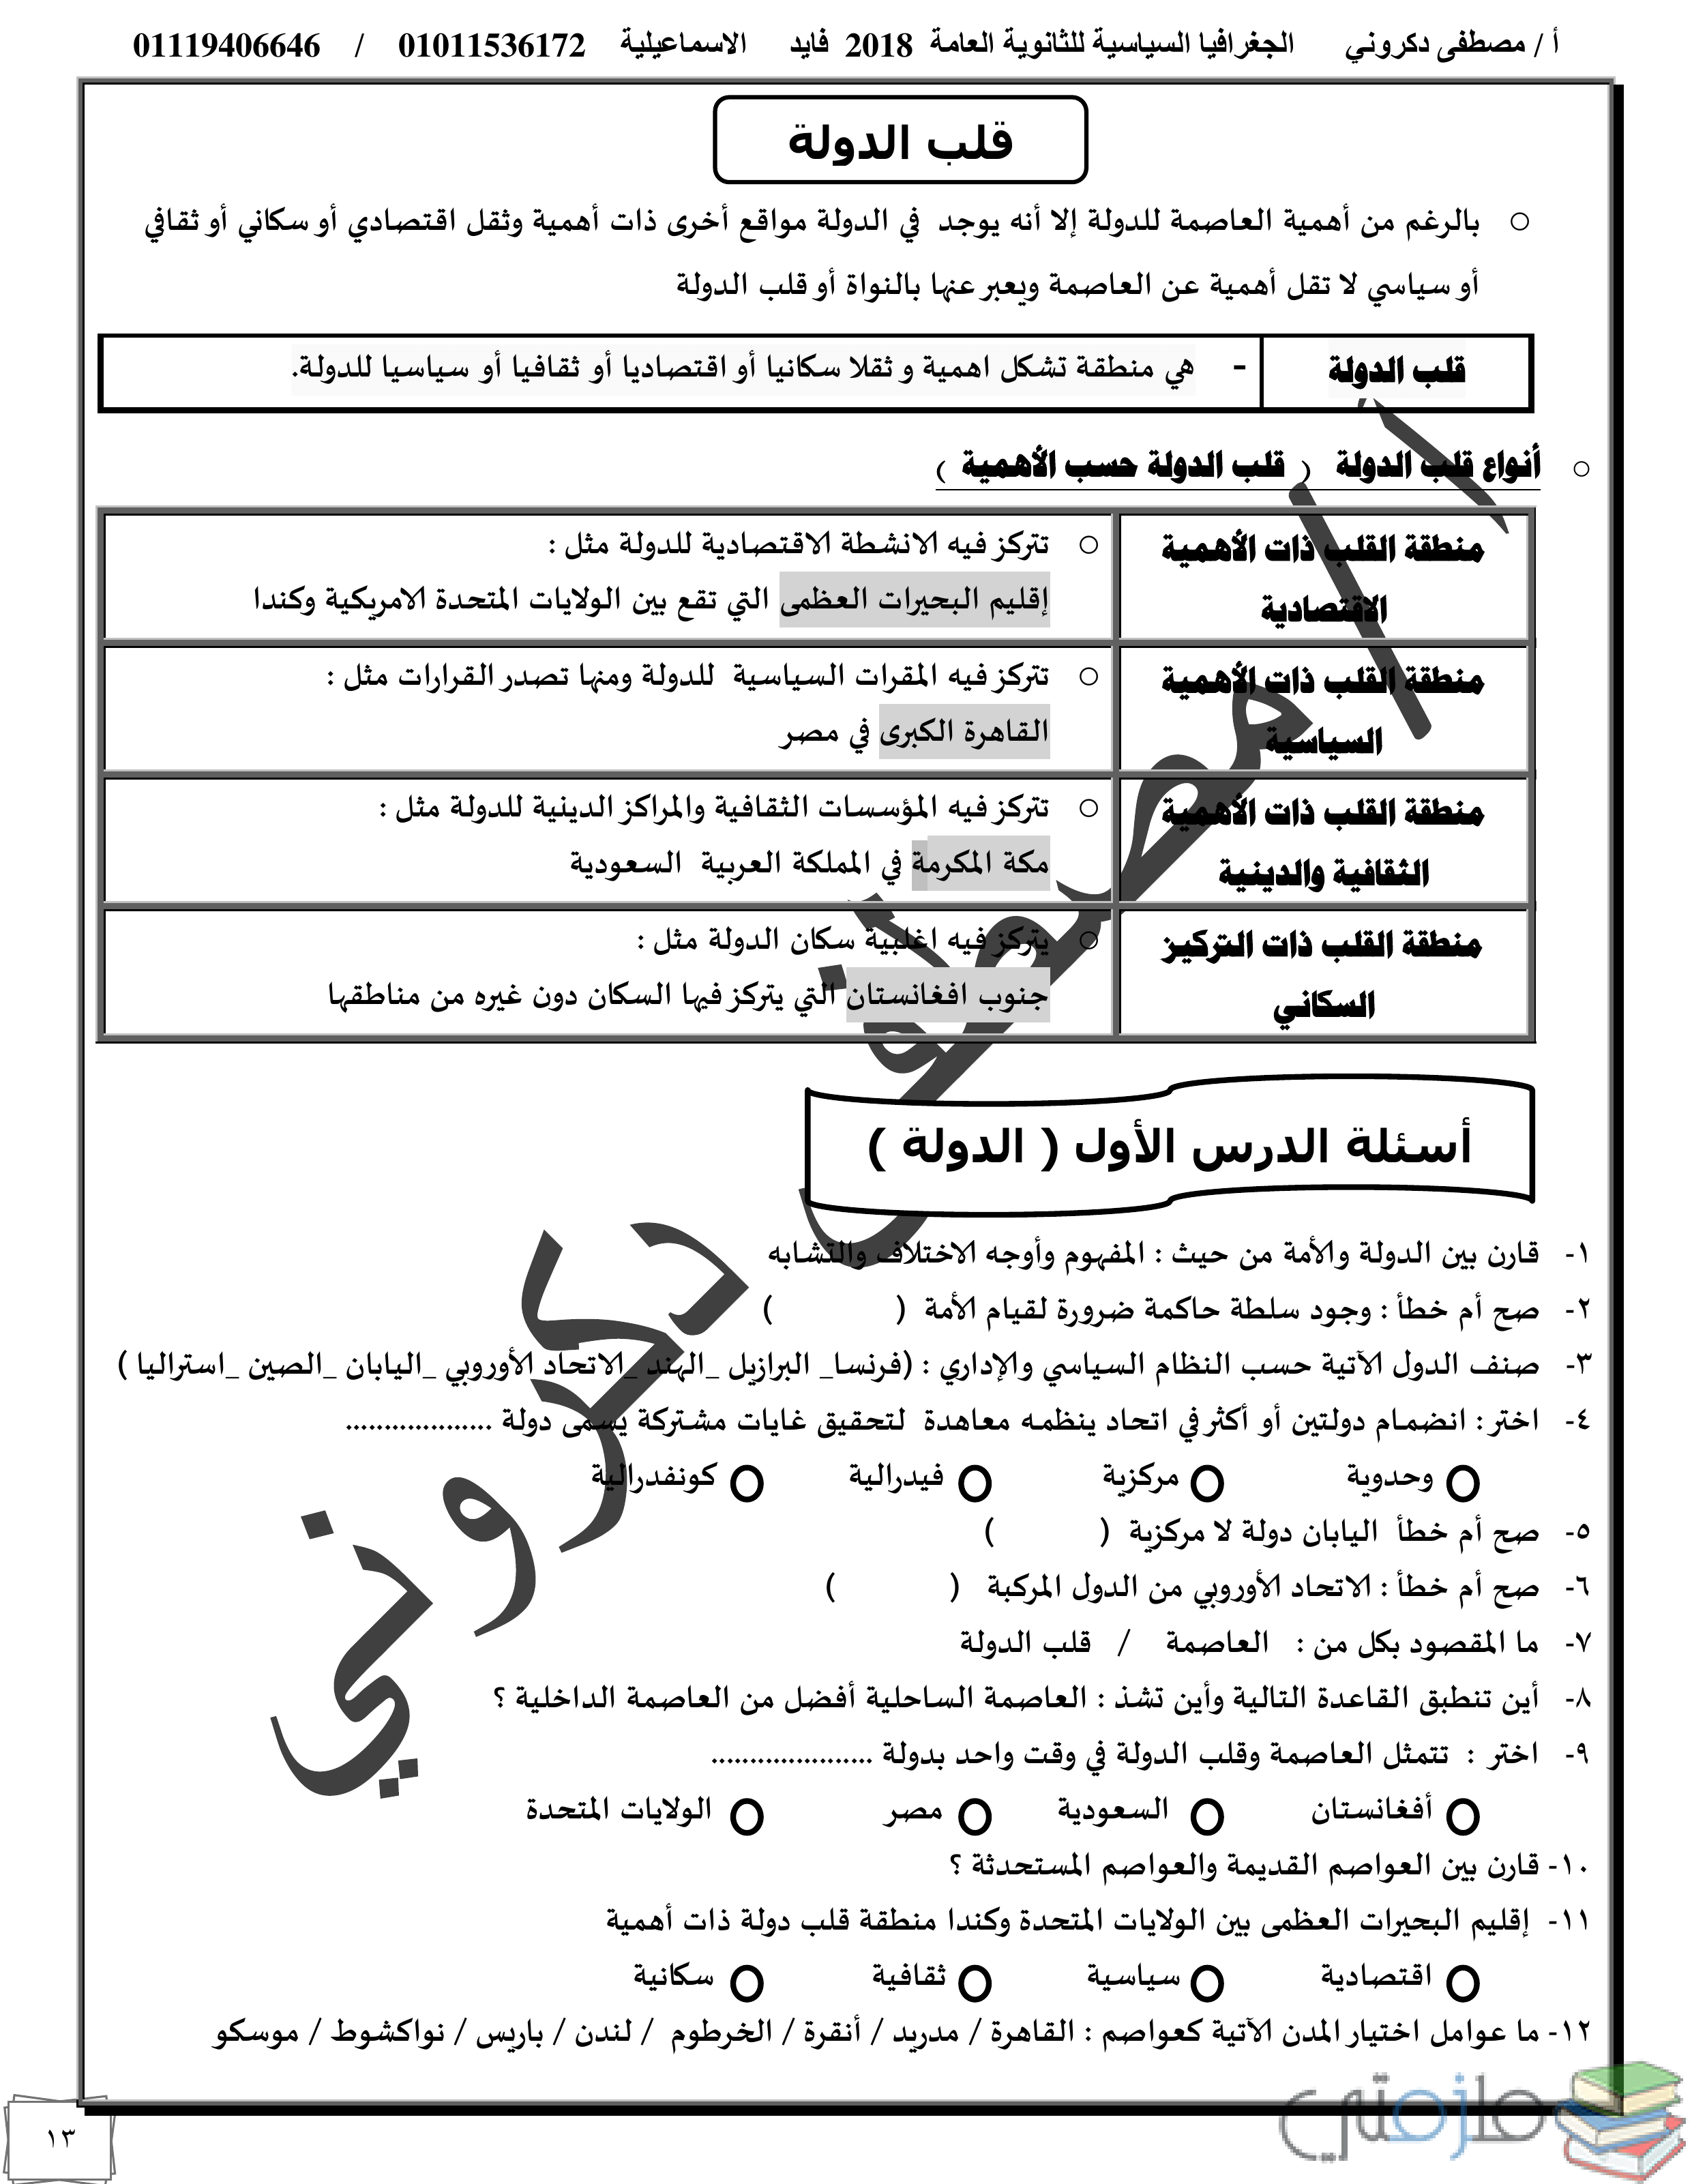 أ / مصطفى دكروني الجغرافيا السياسية للثانوية العامة 2018 فايد الاسماعيلية 01011536172 / 01119406646
قلب الدولة
○ بالرغم من أهمية العاصمة للدولة إلا أنه يوجد في الدولة مواقع أخرى ذات أهمية وثقل اقتصادي أو سكاني أو ثقافي
أو سياسي لا تقل أهمية عن العاصمة ويعبر عنها بالنواة أو قلب الدولة
قلب الدولة - هي منطقة تشكل اهمية و ثقلا سكانيا أو اقتصاديا أو ثقافيا أو سياسيا للدولة.
○ أنواع قلب الدولة ( قلب الدولة حسب الأهمية )
منطقة القلب ذات الأهمية
الاقتصادية
○ تتركز فيه الانشطة الاقتصادية للدولة مثل :
إقليم البحيرات العظمى التي تقع بين الولايات المتحدة الامريكية وكندا
منطقة القلب ذات الأهمية
السياسية
○ تتركز فيه المقرات السياسية للدولة ومنها تصدر القرارات مثل :
القاهرة الكبرى في مصر
منطقة القلب ذات الأهمية
الثقافية والدينية
○ تتركز فيه المؤسسات الثقافية والمراكز الدينية للدولة مثل :
مكة المكرمة في المملكة العربية السعودية
منطقة القلب ذات التركيز
السكاني
○ يتركز فيه اغلبية سكان الدولة مثل :
جنوب افغانستان التي يتركز فيها السكان دون غيره من مناطقها
أسئلة الدرس الأول ( الدولة )
١- قارن بين الدولة والأمة من حيث : المفهوم وأوجه الاختلاف والتشابه
٢- صح أم خطأ : وجود سلطة حاكمة ضرورة لقيام الأمة ( )
٣- صنف الدول الآتية حسب النظام السياسي والإداري : (فرنسا_ البرازيل _الهند _الاتحاد الأوروبي _اليابان _الصين _استراليا )
٤- اختر : انضمام دولتين أو أكثر في اتحاد ينظمه معاهدة لتحقيق غايات مشتركة يسمى دولة ...................
○ وحدوية ○ مركزية ○ فيدرالية ○ كونفدرالية
٥- صح أم خطأ اليابان دولة لا مركزية ( )
٦- صح أم خطأ : الاتحاد الأوروبي من الدول المركبة ( )
٧- ما المقصود بكل من : العاصمة / قلب الدولة
٨- أين تنطبق القاعدة التالية وأين تشذ : العاصمة الساحلية أفضل من العاصمة الداخلية ؟
٩- اختر : تتمثل العاصمة وقلب الدولة في وقت واحد بدولة .....................
○ أفغانستان ○ السعودية ○ مصر ○ الولايات المتحدة
١٠- قارن بين العواصم القديمة والعواصم المستحدثة ؟
١١- إقليم البحيرات العظمى بين الولايات المتحدة وكندا منطقة قلب دولة ذات أهمية
○ اقتصادية ○ سياسية ○ ثقافية ○ سكانية
١٢- ما عوامل اختيار المدن الآتية كعواصم : القاهرة / مدريد / أنقرة / الخرطوم / لندن / باريس / نواكشوط / موسكو
ملزمتي
١٣
أ / مصطفى دكروني